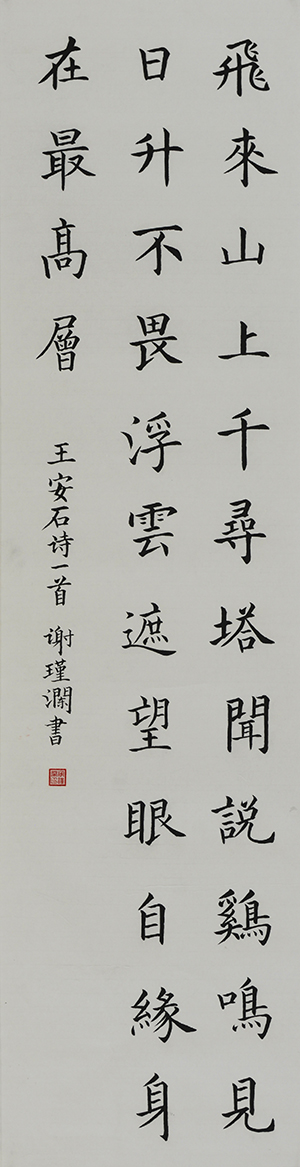 飛來山上千尋塔聞說鷄鳴見
日升不畏浮雲遮望眼自緣身
在最高層
王安石诗一首 谢瑾澜書